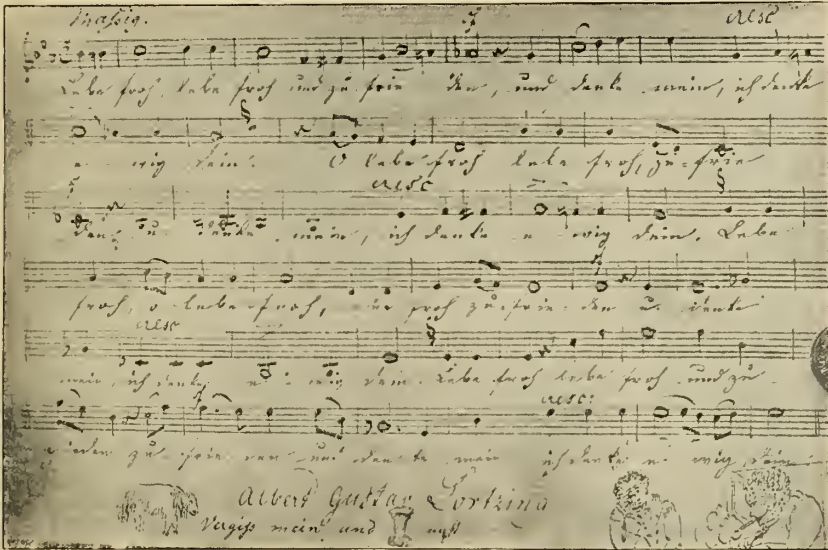 Mäßig. cresc
Lebe froh, lebe froh und zufrie den, und denke mein, ich denke
e wig dein. O lebe froh lebe froh, zu-frie
cresc
den, u. denke mein, ich denke e wig dein. Lebe
froh, o lebe froh, froh zufrie-den u. denke
cresc
mein, ich denke e wig dein. Lebe froh lebe froh und zu
cresc:
zu-frie den und denke mein ich denke e wig dein
Albert Gustav Lortzing
Vergiss mein und nicht